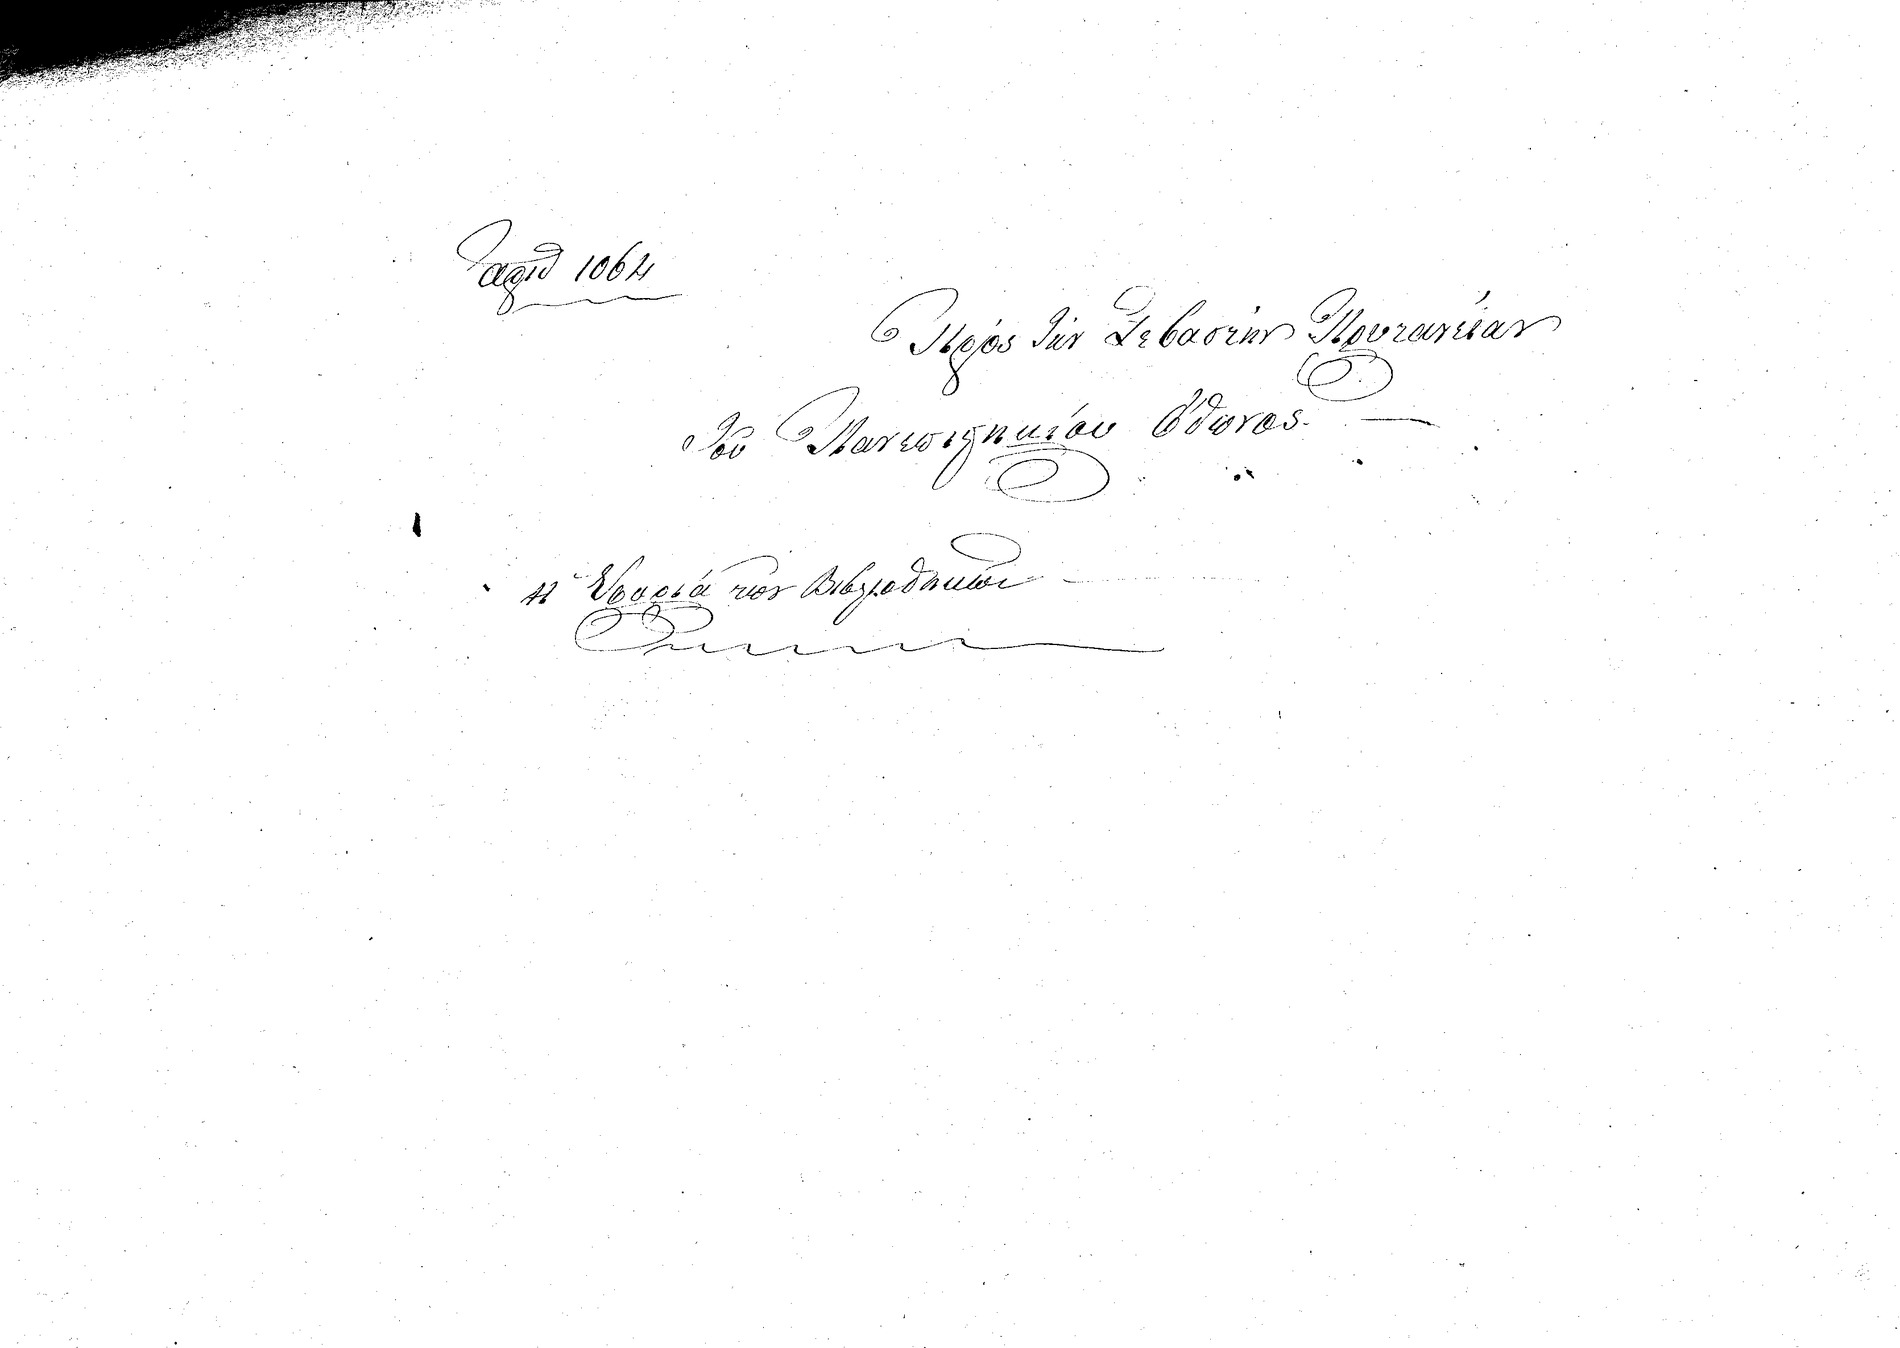 αριθ 1064
Πρὸς τὴν Σεβαστὴν Πρυτανείαν
τοῦ Πανεπιστημίου Ὄθωνος.
Ἡ Ἐφορία τῶν Βιβλιοθηκῶν